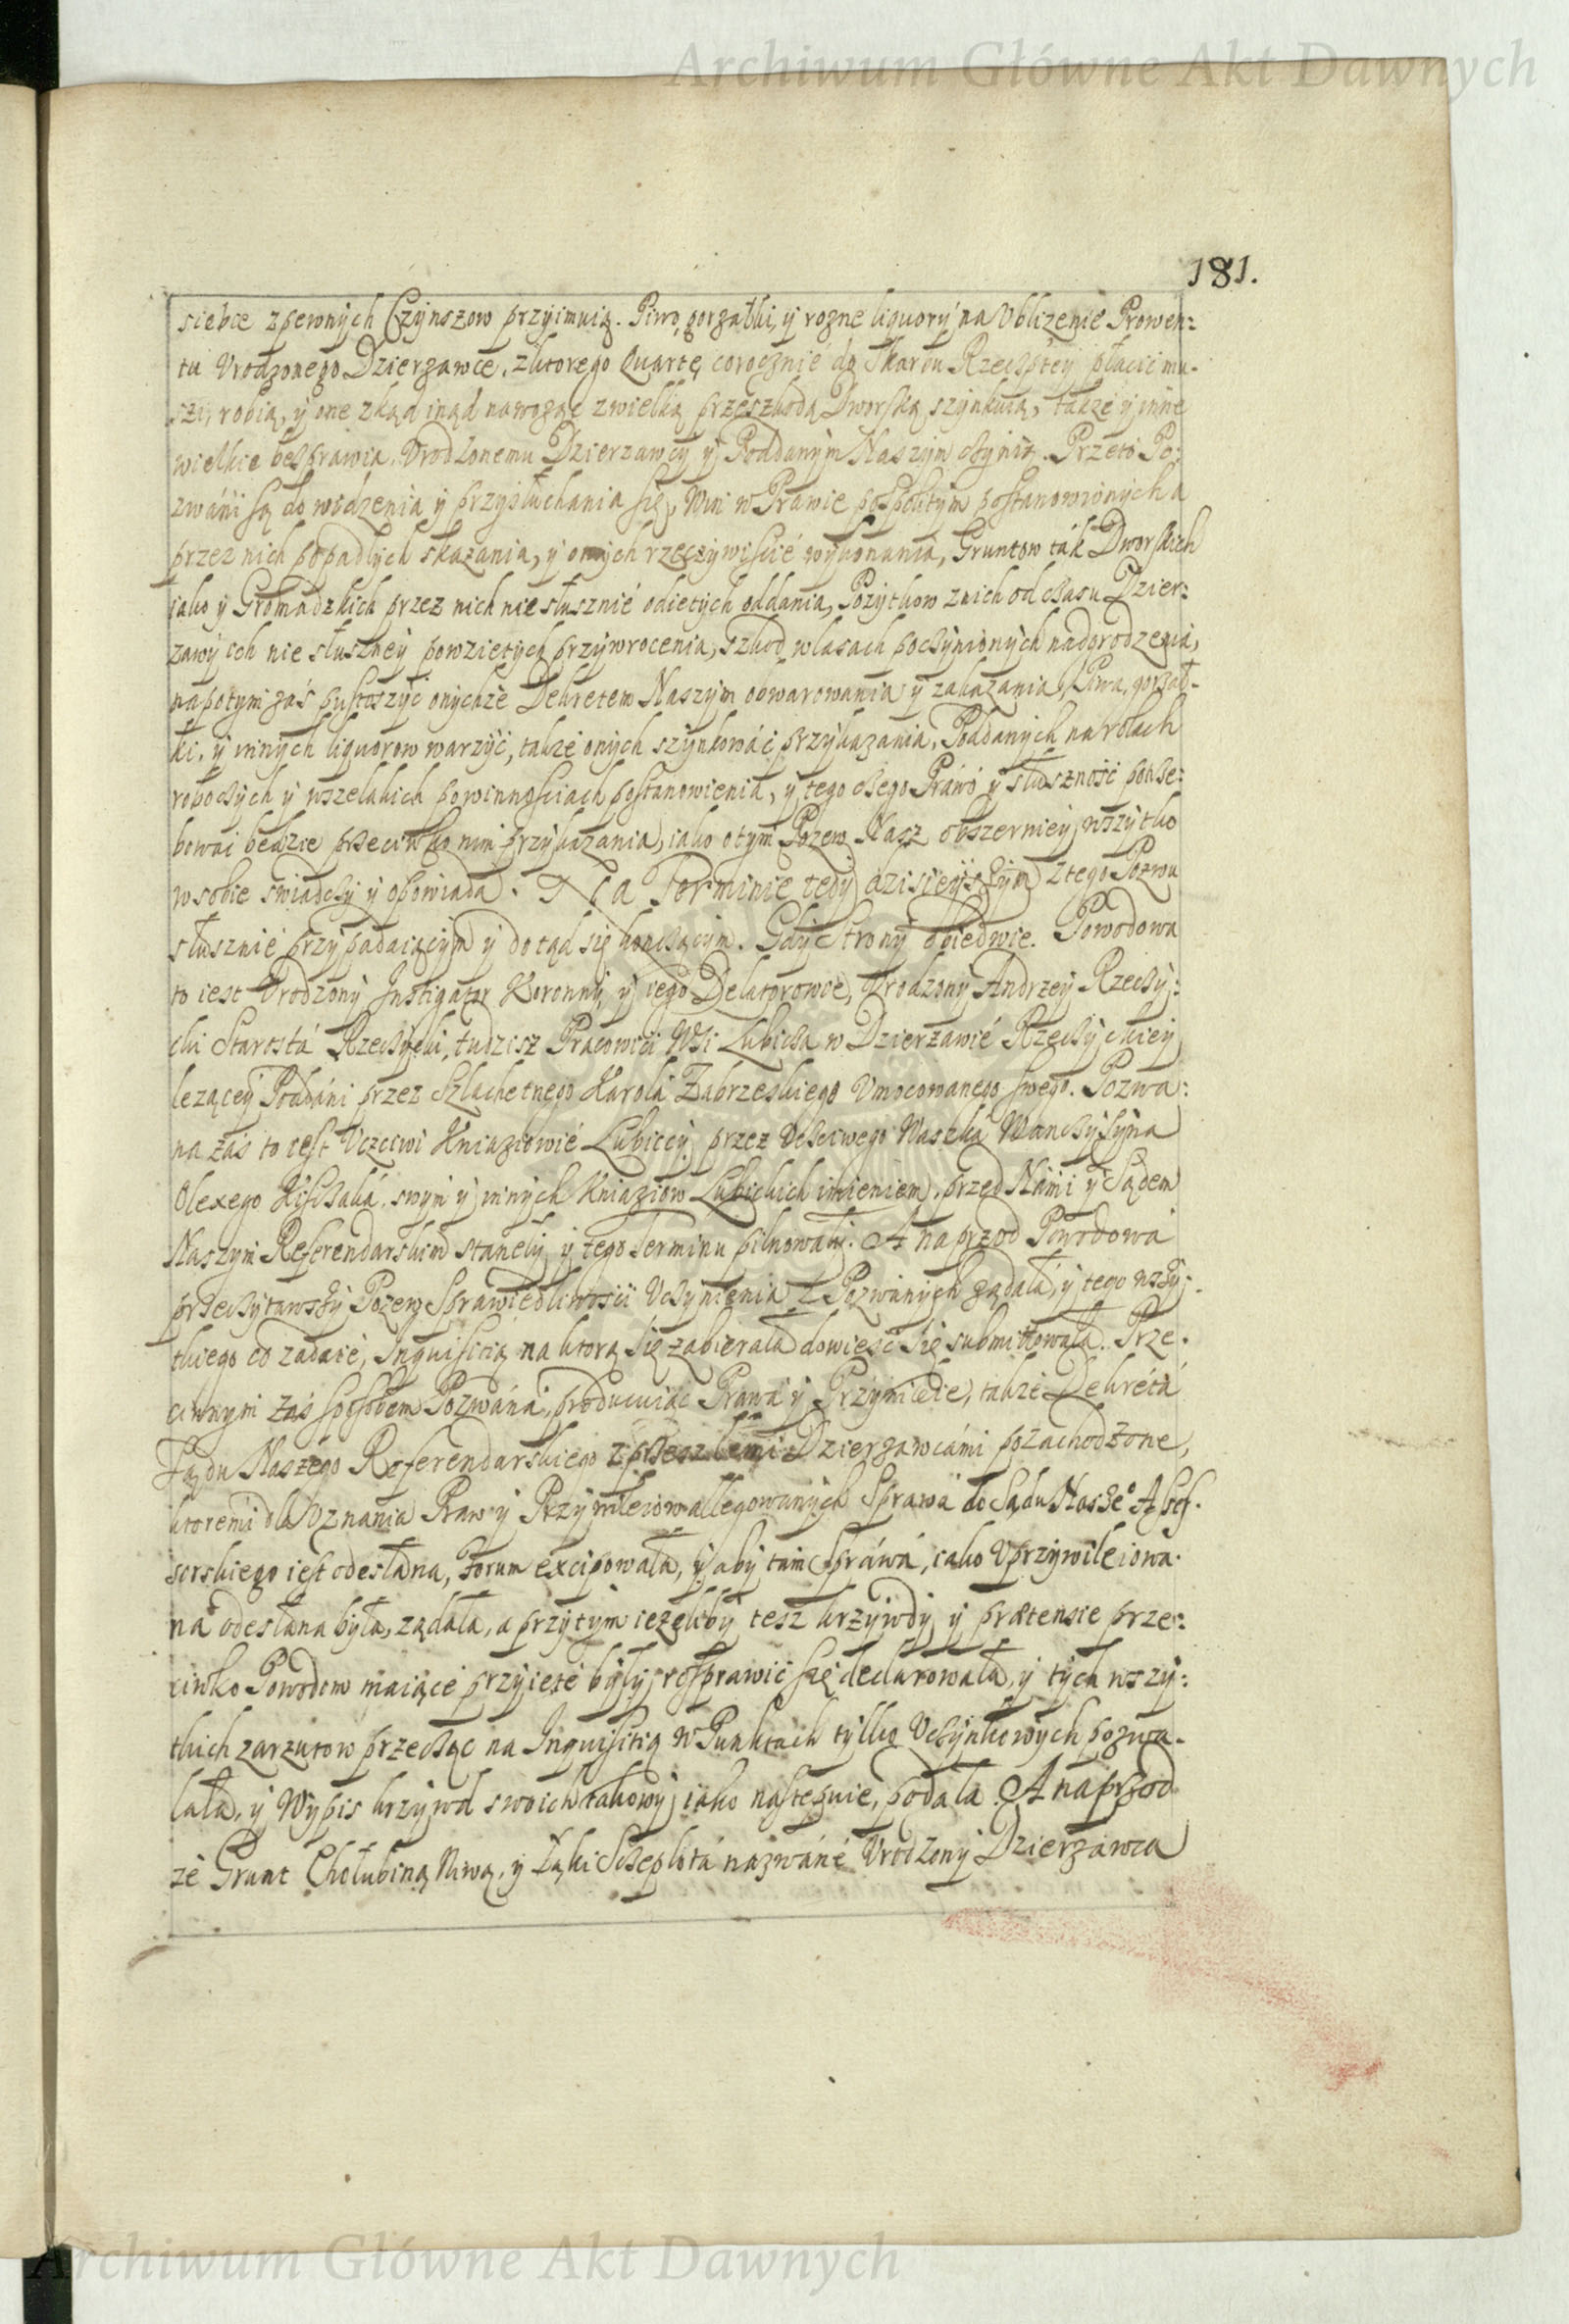 Archiwum Główne Akt Dawnych
181.
siebie zpewnych Czynszow przyimuią. Piwo, gorzałki, y rozne liquory na Ubliżenie Prowen:
tu Urodzonego Dzierzawce, zktorego Quartę corocznie do Skarbu Rzeczptey płacic mu-
szi, robią, y one zkąd inąd nawożąc zwielką przeszkodą Dworską szynkuią, także y inne
wielkie besprawia, Urodzonemu Dzierzawcy y Poddanym Naszym czynią. Przeto Po:
zwáni są do widzenia y przysłuchania się, Win w Prawie pospolitym postanowionych a
przez nich popadłych skazania, y onych rzeczywiscie wykonania, Gruntow ták Dworskich
iako y Gromadzkich przez nich nie słusznie odietych oddania, Pożytkow znich od czasu Dzier:
zawy ich nie słuszney powzietych przywrocenia, szkod wlasach poczynionych nadgrodzenia,
napotym zaś pustoszyć onychże Dekretem Naszym obwarowania y zakazania, Piwa, gorzał-
ki, y innych liquorow warzyć, także onych szynkowáć przykazania, Poddanych na rolach
roboczych y wszelakich powinnosciach postanowienia, y tego czego Práwo y słuszność potrze:
bowai bedzie przeciwko nim przykazania, iako o tym Pozew Nasz obszerniey wszytko
w sobie swiadczy y opowiada. Na Terminie tedy dzisieyszym ztego Pozwu
słusznie przypadaiącym y do tąd się konczącym. Gdy Strony obiedwie. Powodowa
to iest Urodzony Instigator Koronny y iego Delatorowie, Urodzony Andrzey Rzeczy:
cki Starostá Rzeczycki, tudzisz Pracowici Wsi Lubicza w Dzierzawié Rzeczyckiey
leżącey Poddáni przez Szlachetnego Karolá Zabrzeskiego Umocowanego swego. Pozwa:
na zaś to iest Uczciwi Kniaziowié Lubiccy przez Uczciwego Waska Wanczysyna
Olexego Kisczaká, swym y innych Kniaziow Lubickich imieniem, przed Námi y Sądem
Naszym Referendarskim staneły y tego terminu pilnowały. A naprzod Powodowa
przeczytawszy Pozew Sprawiedliwosci Uczynienia z Pozwanych żądała, y tego wszy:
tkiego co zadaie, Inquisitią na ktorą się zabierała dowiesć się submittowała. Prze-
ciwnym zaś sposobem Pozwána, producuiąc Prawa y Przywileie, także Dekretá
Sądu Naszego Referendarskiego z przeszłemi Dzierzawcámi pozachodzone,
ktoremi dla Uznania Praw y Przywileiow allegowanych Sprawa do Sądu Nasze° Asses-
sorskiego iest odesłana, Forum excipowała, y aby tam Spráwá, iako Uprzywileiowa-
na odesłana była, ządała, a przytym iezeliby tesz krzywdy y prætensie prze:
ciwko Powodom maiące przyięte były, rosprawić się declarowała, y tych wszy:
tkich zarzutow przecząc na Inquisitią w Punktach tylko Uczynkowych pozwa-
lała, y Wypis krzywd swoich takowy iako nastepuie, podała. A naprzod
że Grunt Chołubiną Niwą, y Łąki Szczepłotá nazwáné Urodzony Dzierzawca
Archiwum Główne Akt Dawnych